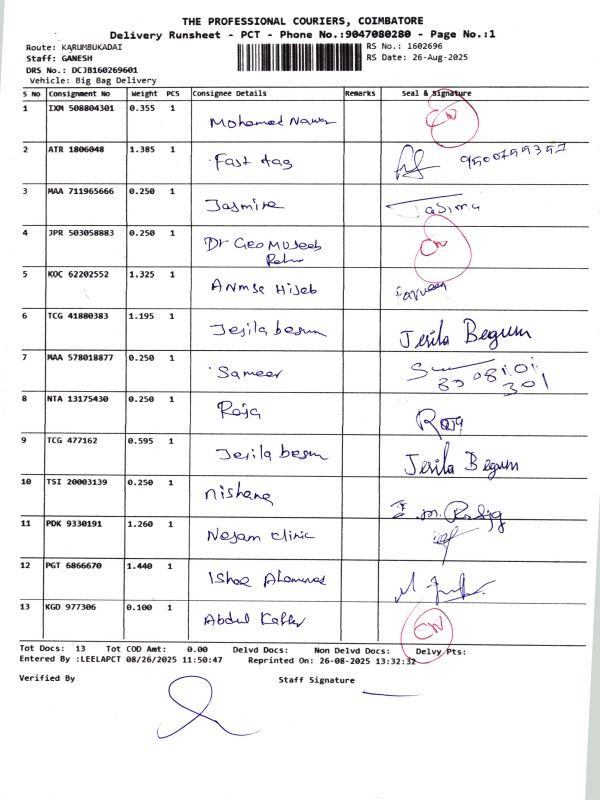 THE PROFESSIONAL COURIERS, COIMBATORE
Delivery Runsheet - PCT - Phone No.:9047080280 - Page No.:1
Route: KARUMBUKADAI RS No.: 1602696
Staff: GANESH RS Date: 26-Aug-2025
DRS No.: DCJB160269601
Vehicle: Big Bag Delivery
S No Consignment No Weight PCS Consignee Details Remarks Seal & Signature
1 IXM 508804301 0.355 1 Mohamed
2 ATR 1806048 1.385 1 Fast tag
3 MAA 711965666 0.250 1 Jasmine
4 JPR 503058883 0.250 1 Dr Geo Museeb
5 KOC 62202552 1.325 1 Hijeb
6 TCG 41880383 1.195 1 Jesila begum Jesila Begum
7 MAA 578018877 0.250 1 Sameer
8 NTA 13175430 0.250 1 Roja Roja
9 TCG 477162 0.595 1 Jesila begum Jesila Begum
10 TSI 20003139 0.250 1 nishana
11 PDK 9330191 1.260 1 Nesam clinic
12 PGT 6866670 1.440 1
13 KGD 977306 0.100 1 Abdul
Tot Docs: 13 Tot COD Amt: 0.00 Delvd Docs: Non Delvd Docs: Delvy Pts:
Entered By :LEELAPCT 08/26/2025 11:50:47 Reprinted On: 26-08-2025 13:32:32
Verified By Staff Signature